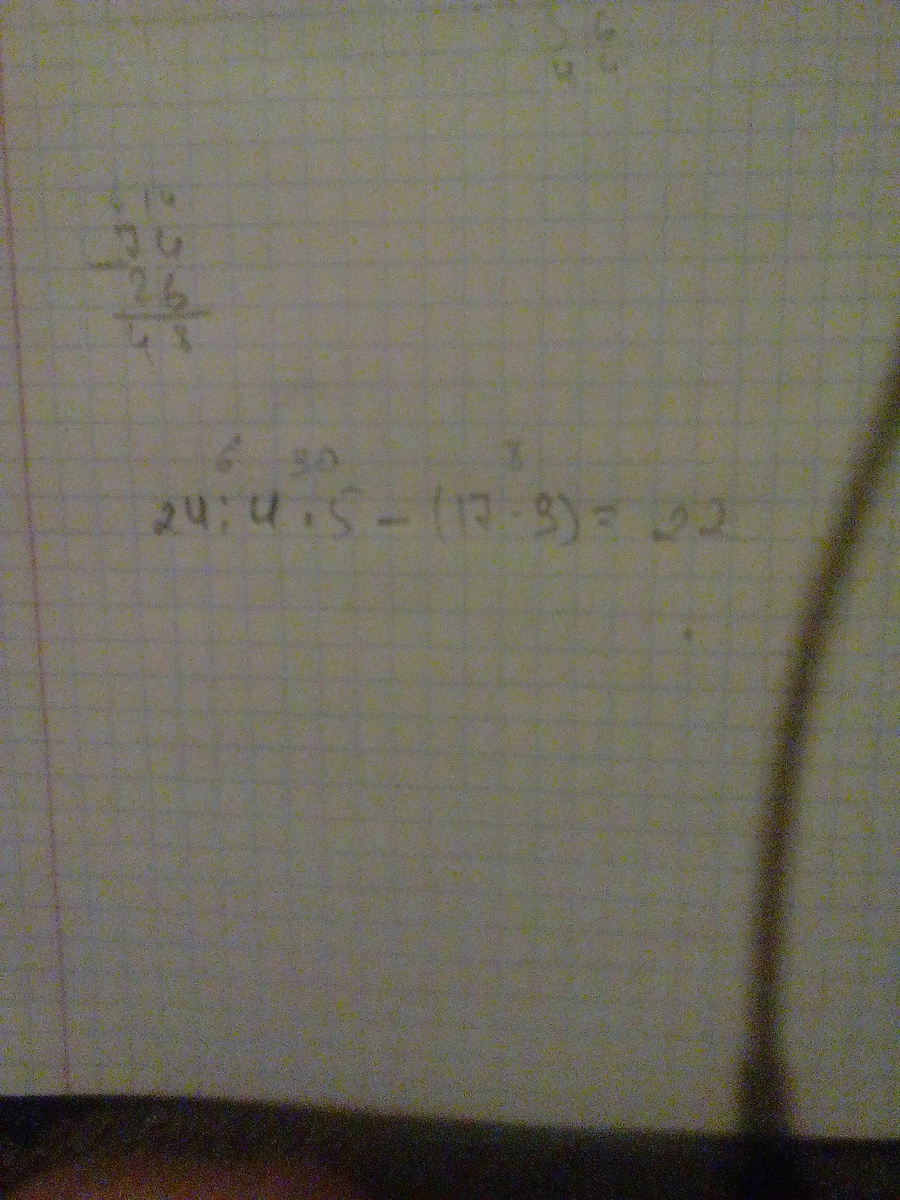 6 14
74
- 26
48
6 30 8
24:4·5-(17-9)=22